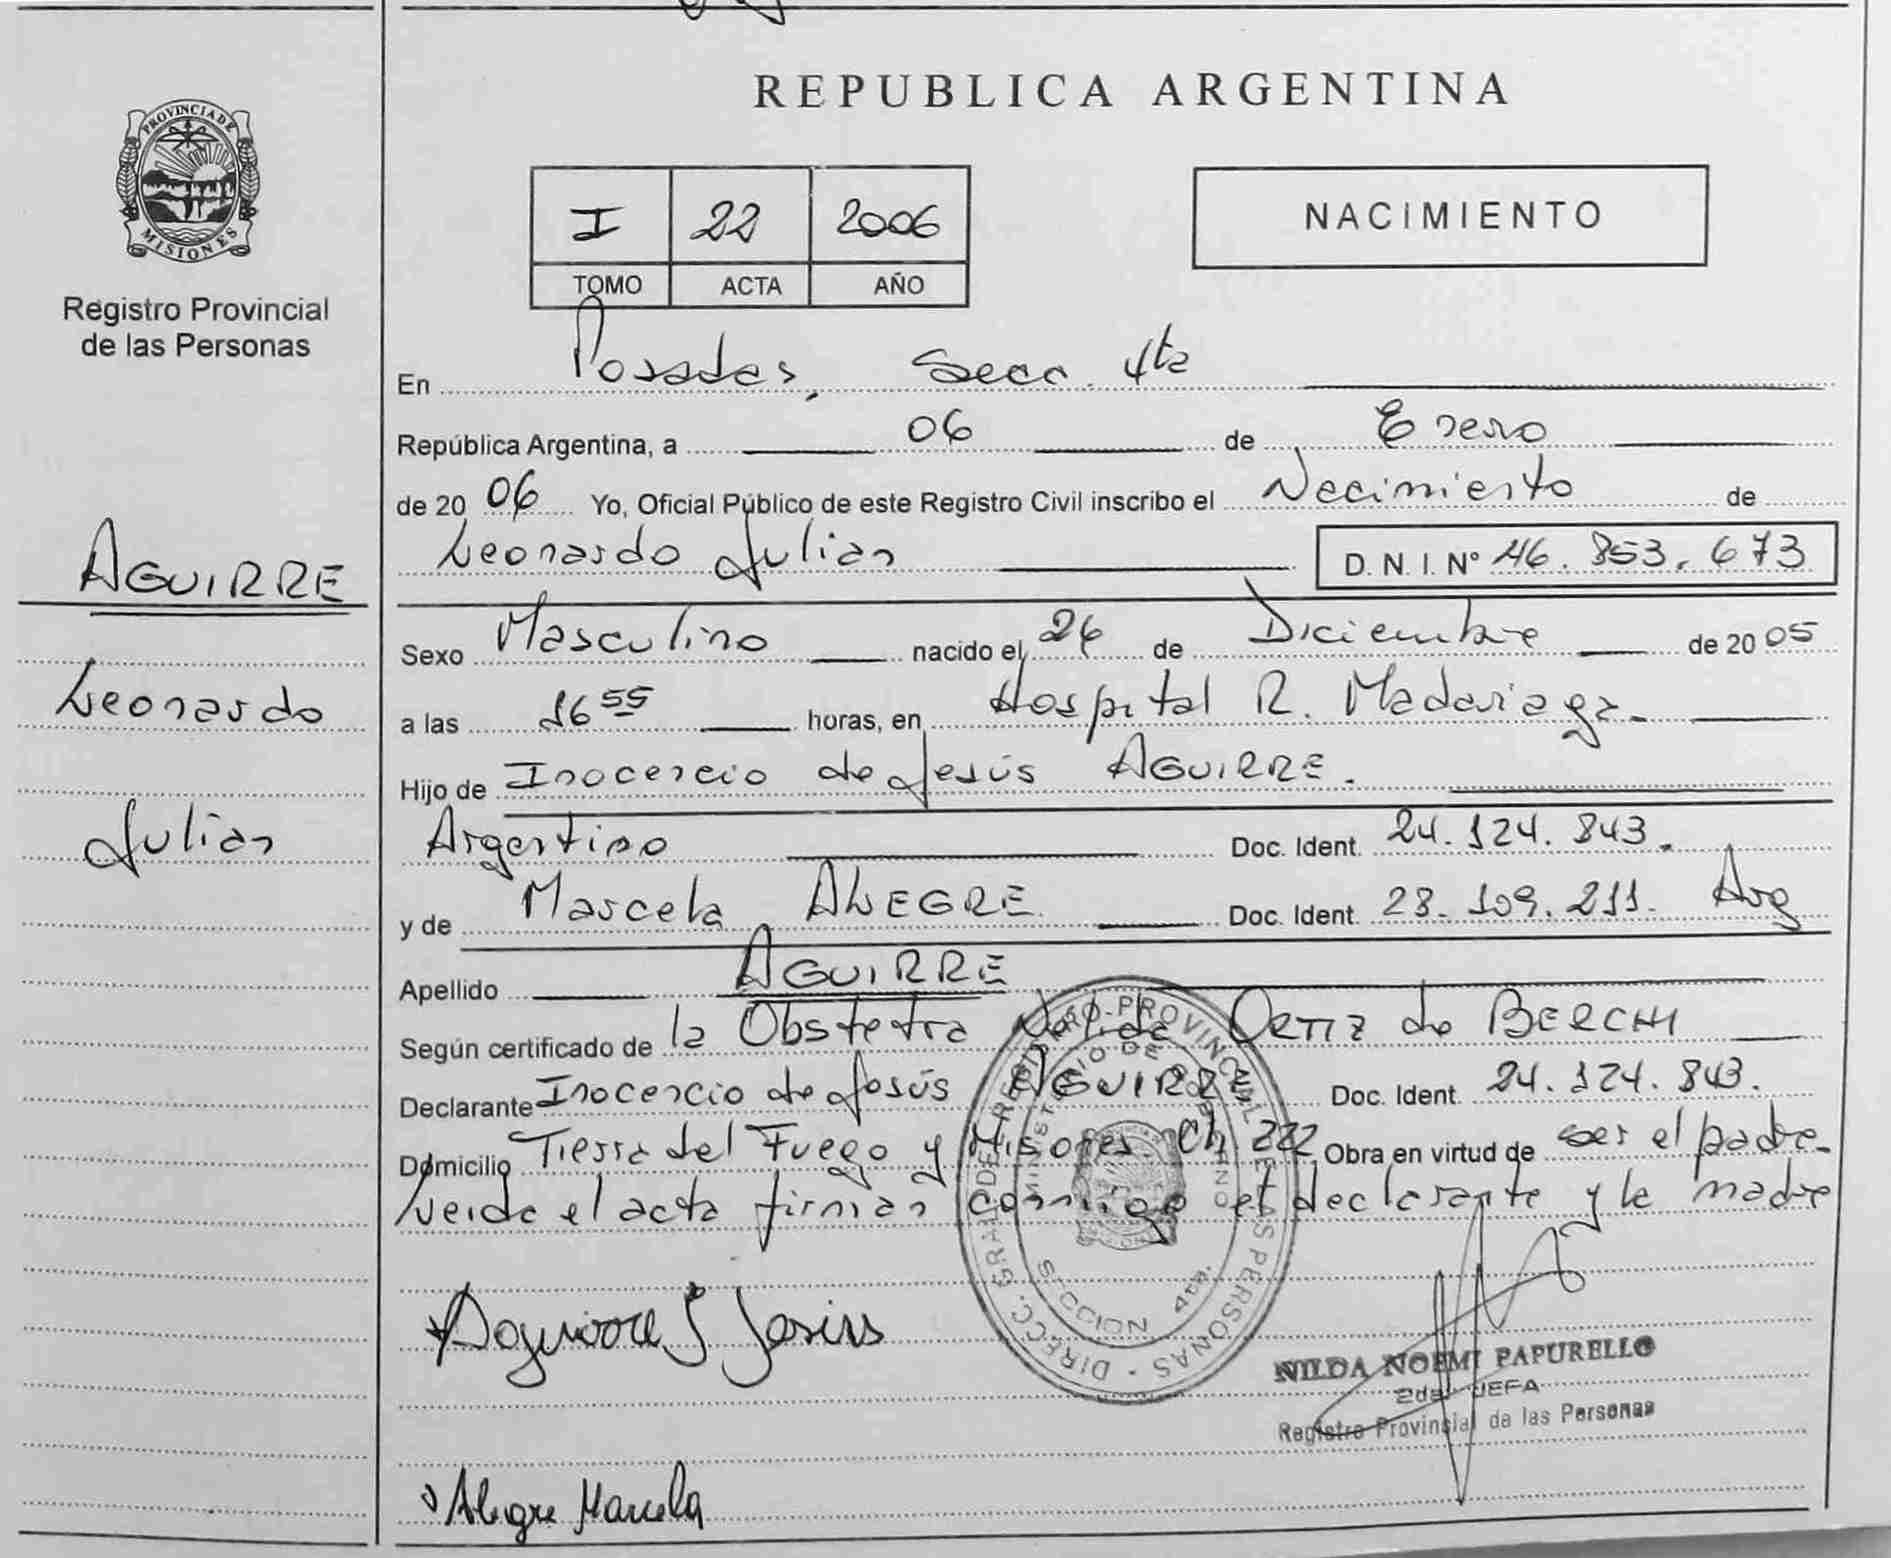 REPUBLICA ARGENTINA
PROVINCIA DE MISIONES
Registro Provincial
de las Personas
I 22 2006
TOMO ACTA AÑO
NACIMIENTO
En Posadas, Secc. 4ta
República Argentina, a 06 de Enero
de 20 06 Yo, Oficial Público de este Registro Civil inscribo el Nacimiento de
Leonardo Julian D. N. I. Nº 46. 853. 673
AGUIRRE
Leonardo
Julian
Sexo Masculino nacido el 26 de Diciembre de 20 05
a las 16 55 horas, en Hospital R. Madariaga.
Hijo de Inocencio de Jesús AGUIRRE.
Argentino Doc. Ident. 24. 124. 843.
y de Marcela ALEGRE Doc. Ident. 23. 109. 211. Arg
Apellido AGUIRRE
Según certificado de la Obstetra Nelida ORTIZ de BERCHI
Declarante Inocencio de Jesús AGUIRRE Doc. Ident. 24. 124. 843.
Domicilio Tierra del Fuego y Misiones. Ch 222 Obra en virtud de ser el padre.
Leida el acta firman conmigo el declarante y la madre
DIRECC. GRAL. DEL REGISTRO PROVINCIAL DE LAS PERSONAS
MINISTERIO DE GOBIERNO
SECCION 4ta.
Aguirre I Jesus
NILDA NOEMI PAPURELLO
2da JEFA
Registro Provincial de las Personas
Alegre Marcela